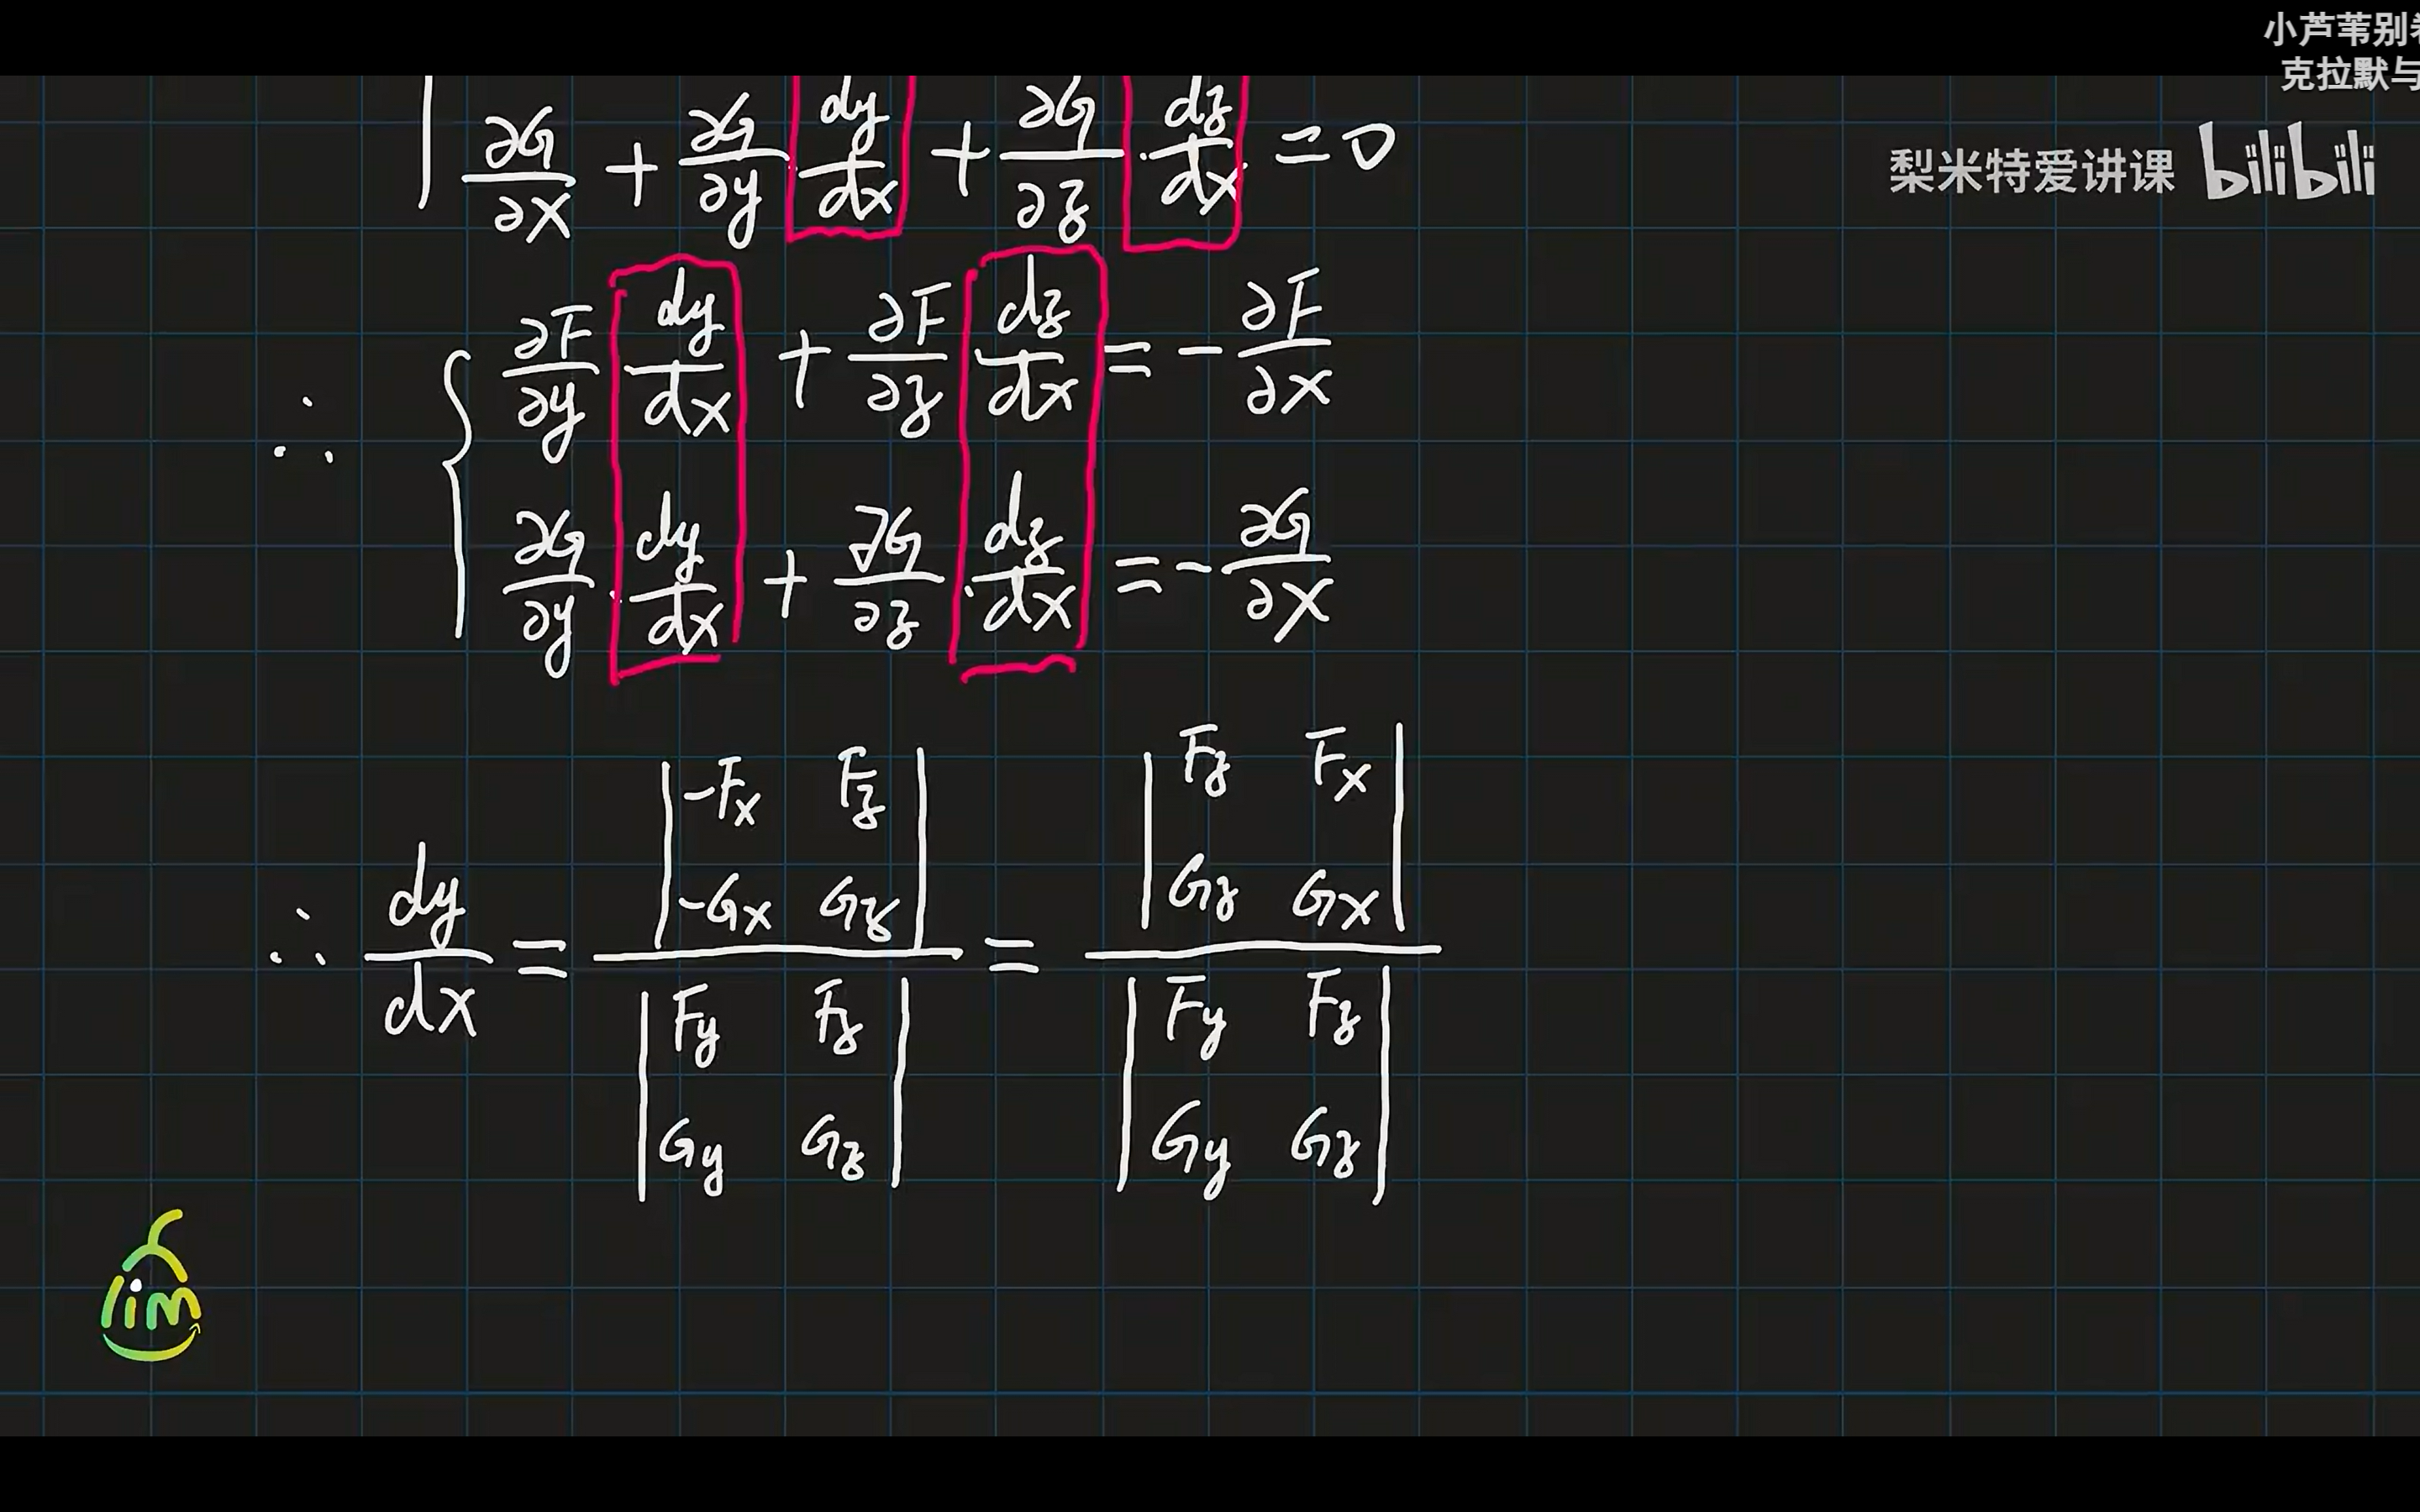 小芦苇别
克拉默与
梨米特爱讲课 bilibili
∂G/∂x + ∂G/∂y · dy/dx + ∂G/∂z · dz/dx = 0
∴ { ∂F/∂y dy/dx + ∂F/∂z dz/dx = - ∂F/∂x
∂G/∂y · dy/dx + ∂G/∂z · dz/dx = - ∂G/∂x
∴ dy/dx = | -Fx Fz | / | Fy Fz | = | Fz Fx | / | Fy Fz |
| -Gx Gz | / | Gy Gz | | Gz Gx | / | Gy Gz |
lim